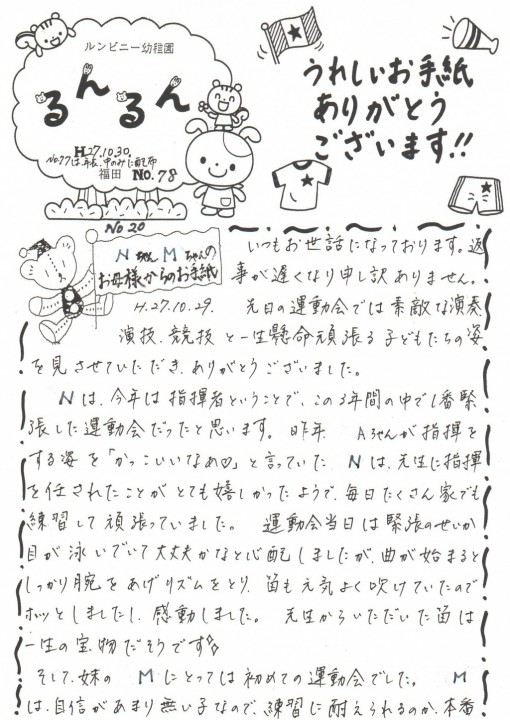 ルンビニー幼稚園
るんるん
H.27.10.30.
No.77は年長、中のみに配布
福田 No.78
うれしいお手紙
ありがとう
ございます!!
No 20
Nちゃん Mちゃんの
お母様からのお手紙
いつもお世話になっております。返
事が遅くなり申し訳ありません。
H.27.10.29. 先日の運動会では素敵な演奏
演技、競技と一生懸命頑張る子どもたちの姿
を見させていただき、ありがとうございました。
Nは、今年は指揮者ということで、この3年間の中で1番緊
張した運動会だったと思います。昨年 Aちゃんが指揮を
する姿を「かっこいいなぁ♡」と言っていた Nは、先生に指揮
を任されたことがとても嬉しかったようで、毎日たくさん家でも
練習して頑張っていました。 運動会当日は緊張のせいか
目が泳いでいて大丈夫かなと心配しましたが、曲が始まると
しっかり腕をあげリズムをとり、笛も元気よく吹けていたので
ホッとしましたし、感動しました。 先生からいただいた笛は
一生の宝物だそうです
そして、妹の Mにとっては初めての運動会でした。 M
は、自信があまり無い子なので、練習に耐えられるのか、本番